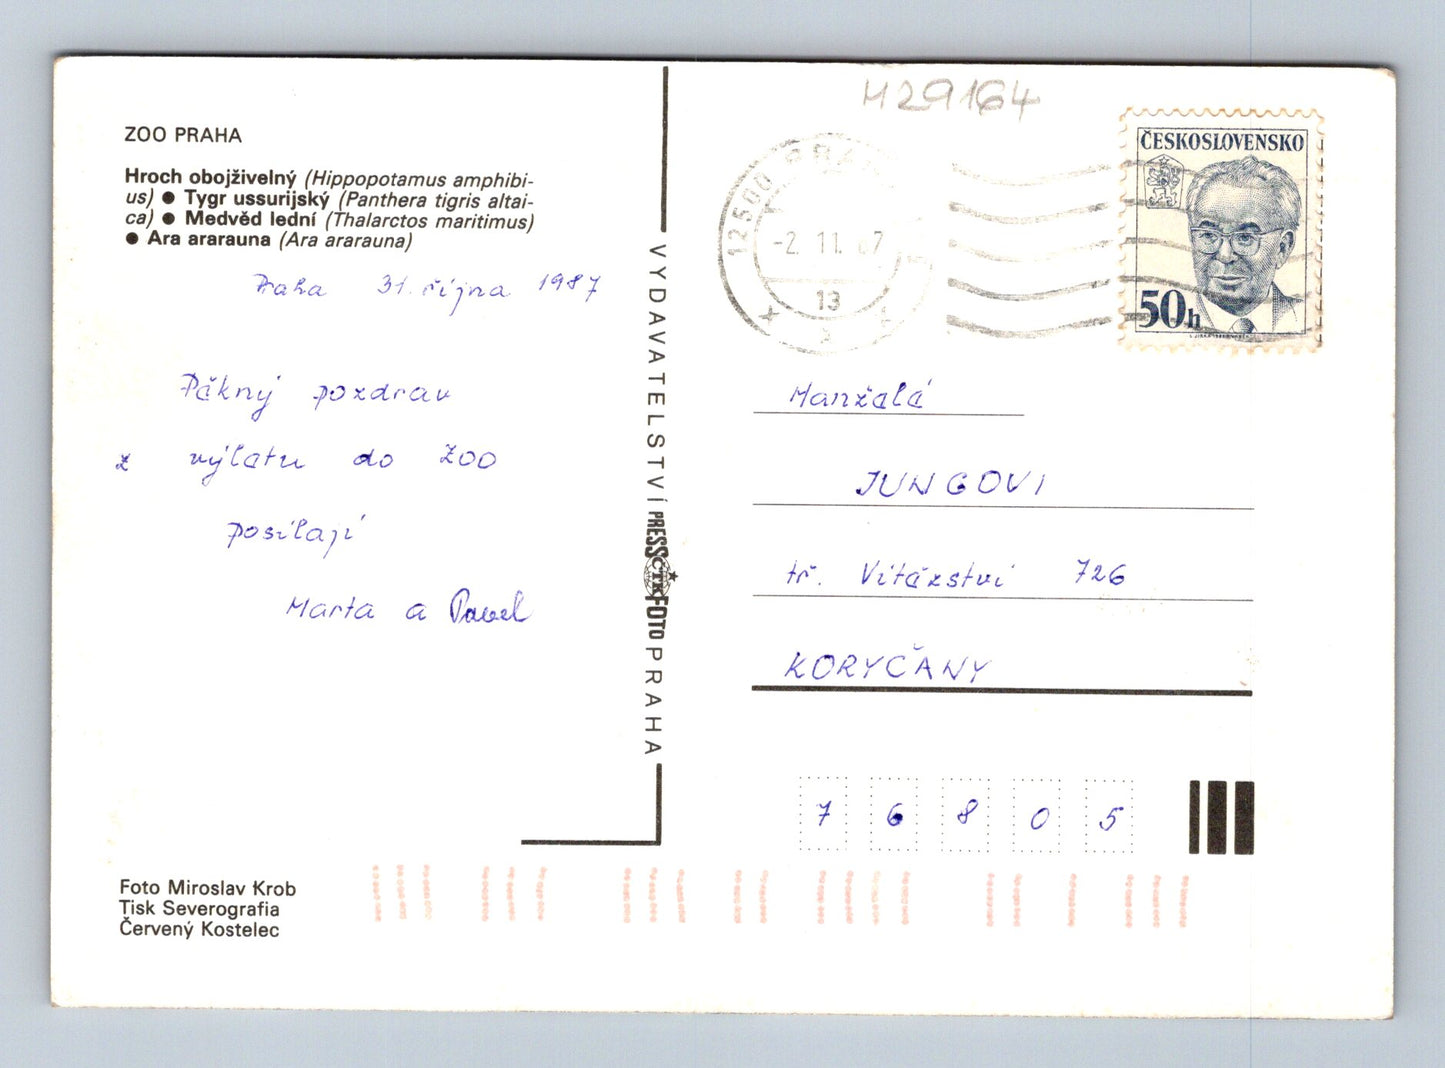 ZOO PRAHA
Hroch obojživelný (Hippopotamus amphibi-
us) ● Tygr ussurijský (Panthera tigris altai-
ca) ● Medvěd lední (Thalarctos maritimus)
● Ara ararauna (Ara ararauna)
Praha 31. října 1987
Pěkný pozdrav
z výletu do ZOO
posílají
Marta a Pavel
Foto Miroslav Krob
Tisk Severografia
Červený Kostelec
VYDAVATELSTVÍ PRESSFOTO PRAHA
ČTK
M29164
12500 PRAHA
-2.11.87
13
ČESKOSLOVENSKO
50h
Manželé
JUNGOVI
tř. Vítězství 726
KORYČANY
7 6 8 0 5